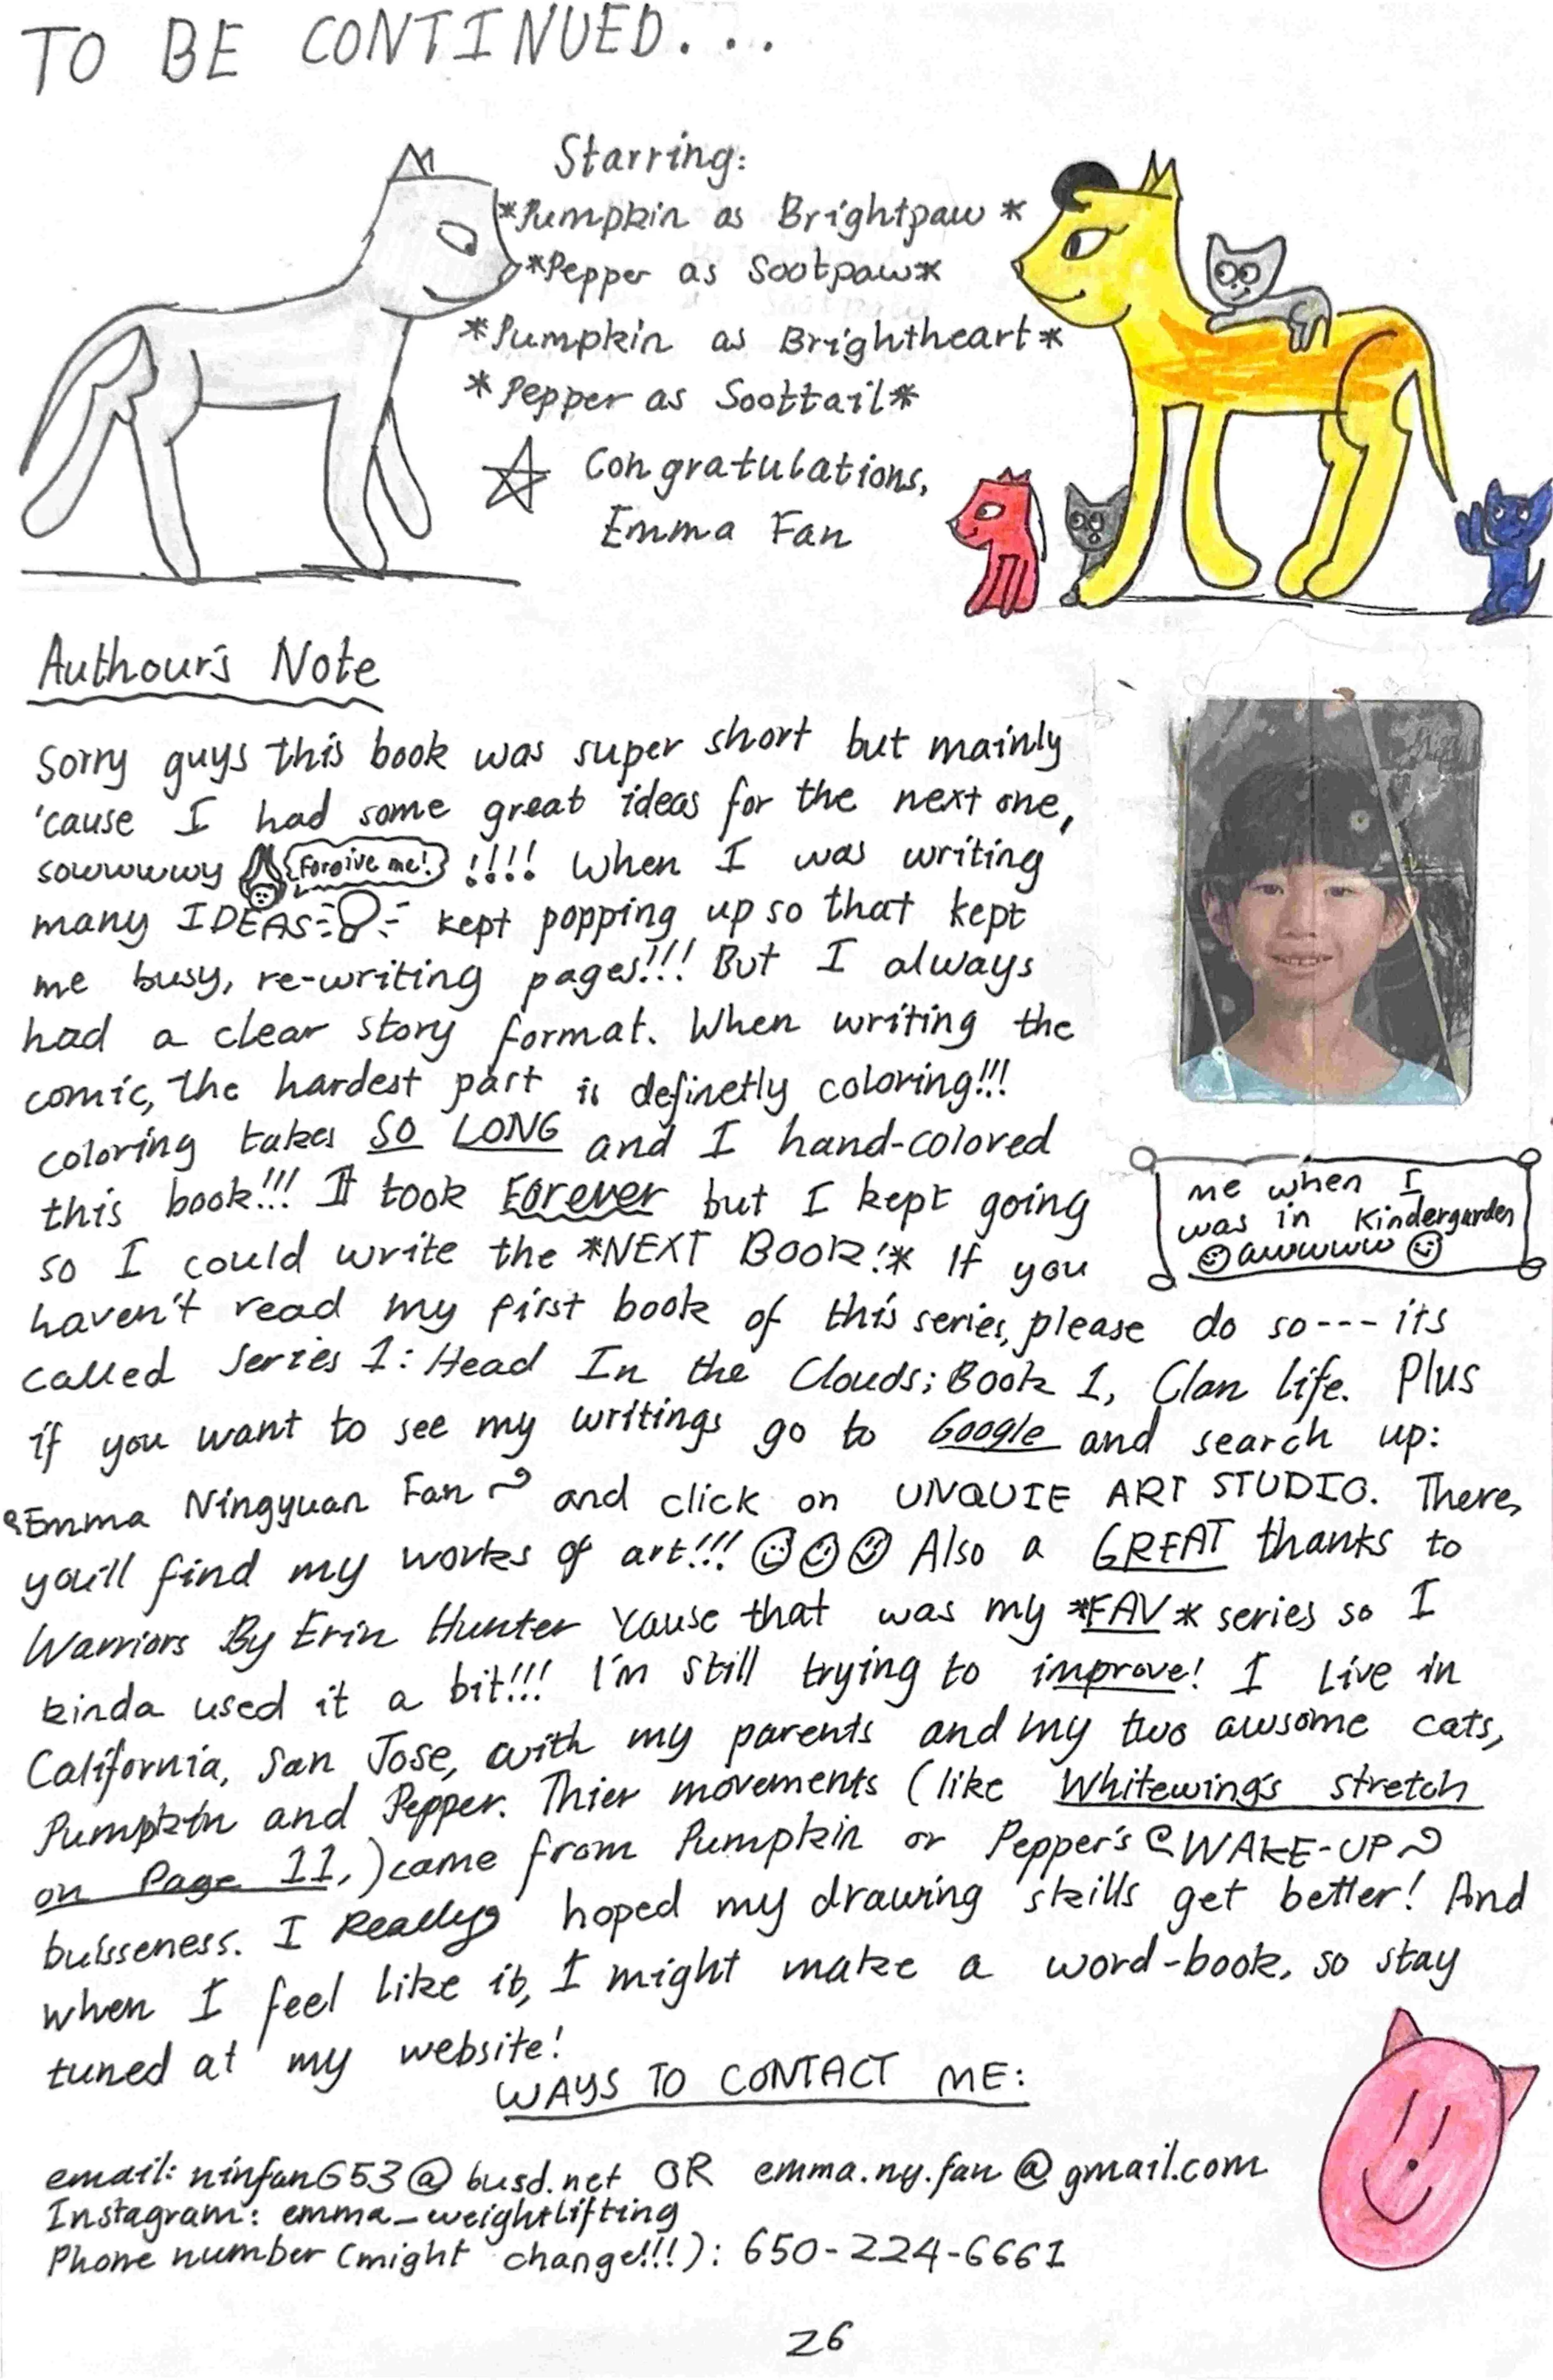 TO BE CONTINUED...
Starring:
*Pumpkin as Brightpaw*
*Pepper as Sootpaw*
*Pumpkin as Brightheart*
*Pepper as Soottail*
Congratulations,
Emma Fan
Authour's Note
Sorry guys this book was super short but mainly
'cause I had some great ideas for the next one,
sowwwwy Forgive me! !!!! When I was writing
many IDEAS kept popping up so that kept
me busy, re-writing pages!!! But I always
had a clear story format. When writing the
comic, the hardest part is definetly coloring!!!
coloring takes SO LONG and I hand-colored
this book!!! It took Forever but I kept going
so I could write the *NEXT BOOK!* If you
me when I
was in Kindergarden
awwwww
haven't read my first book of this series, please do so--- its
called Series 1: Head In the Clouds; Book 1, Clan Life. Plus
if you want to see my writings go to Google and search up:
Emma Ningyuan Fan~ and click on UNQUIE ART STUDIO. There,
you'll find my works of art!!! Also a GREAT thanks to
Warriors By Erin Hunter 'cause that was my *FAV* series so I
kinda used it a bit!!! I'm still trying to improve! I live in
California, San Jose, with my parents and my two awsome cats,
Pumpkin and Pepper. Thier movements (like Whitewing's stretch
on Page 11,) came from Pumpkin or Pepper's WAKE-UP
buisseness. I Really hoped my drawing skills get better! And
when I feel like it, I might make a word-book, so stay
tuned at my website!
WAYS TO CONTACT ME:
email: ninfan653@busd.net OR emma.ny.fan@gmail.com
Instagram: emma_weightlifting
Phone number (might change!!!): 650-224-6661
26